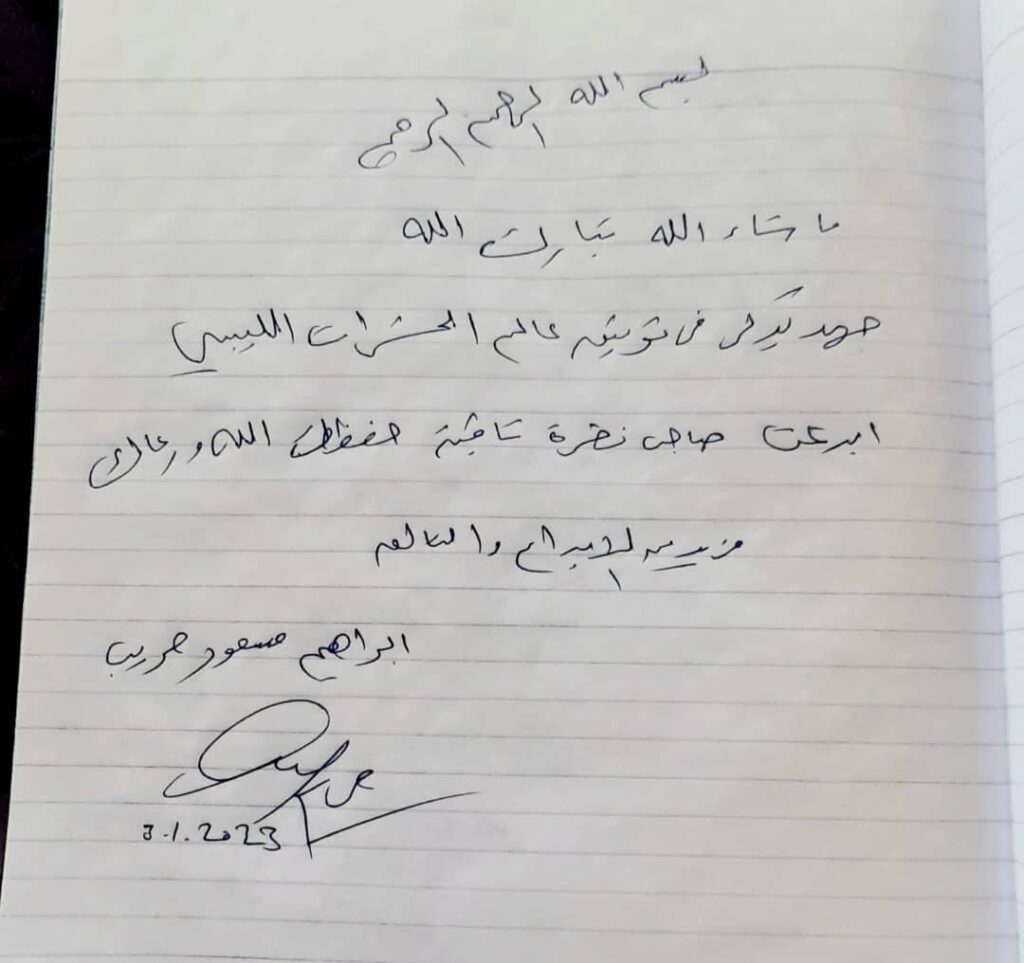 بسم الله الرحمن الرحيم
ما شاء الله تبارك الله
جهد يذكر في توثيق عالم الحشرات الليبي
ابدعت صاحب نظرة ثاقبة حفظك الله ورعاك
مزيد من الابداع والتالق
ابراهيم مسعود
3.1.2023